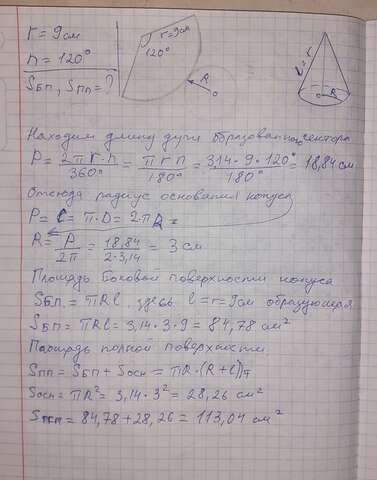 r = 9см
n = 120°
Sбп, Sпп = ?
r=9см
120°
R
l = r
R
Находим длину дуги образованного сектора
P = 2πr·n/360° = πrn/180° = 3,14·9·120°/180° = 18,84 см
Отсюда радиус основания конуса
P = C = π·D = 2πR =
R = P/2π = 18,84/2·3,14 = 3 см
Площадь боковой поверхности конуса
Sбп = πRl, здесь l=r=9см образующая
Sбп = πRl = 3,14·3·9 = 84,78 см²
Площадь полной поверхности
Sпп = Sбп + Sосн = πR·(R+l)
Sосн = πR² = 3,14·3² = 28,26 см²
Sпп = 84,78 + 28,26 = 113,04 см²